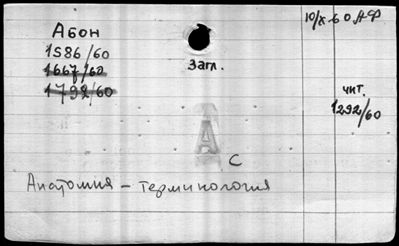 10/X-60 АФ
Абон
1586/60
1667/60
1792/60
Загл.
чит.
1292/60
А
С
Анатомия - терминология